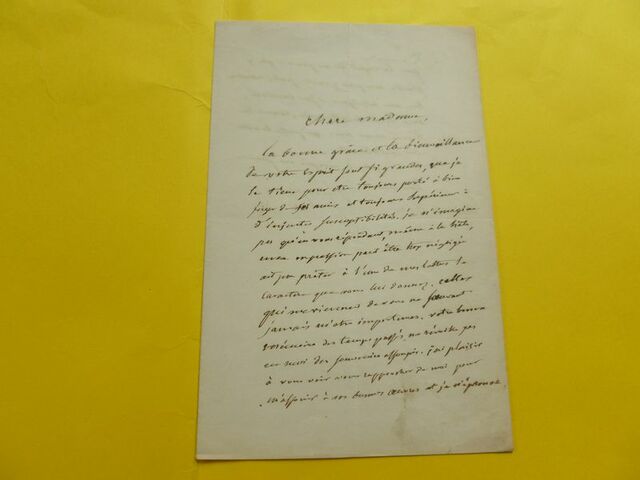 chere madame,
la bonne grâce et la bienveillance
de votre esprit sont si grandes, que je
le tiens pour etre toujours porté à bien
juger de ses amis et toujours supérieur à
d'injustes susceptibilités. je n'imagine
pas qu'en vous répondant, même à la hâte,
une expression peut être trop négligée
ait pu prêter à l'une de mes lettres le
caractère que vous lui donnez. celles
qui me viennent de vous ne sauraient
jamais m'être importunes. votre bonne
des temps passés ne réveille pas
en moi des souvenirs assoupis. j'ai plaisir
à vous voir vous rapprocher de moi pour
m'associer à vos bonnes œuvres et je n'éprouve